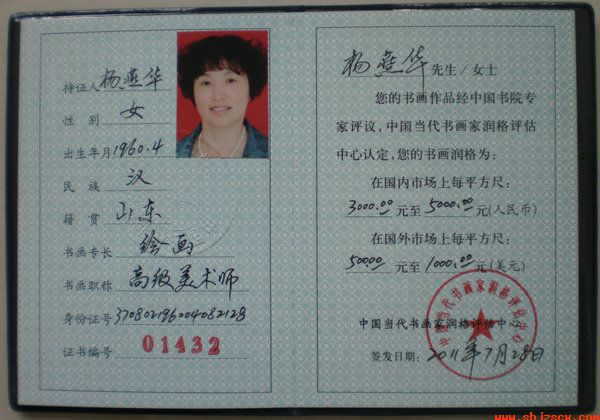 持证人 杨燕华
性 别 女
出生年月 1960.4
民 族 汉
籍 贯 山东
书画专长 绘画
书画职称 高级美术师
身份证号 370802196004082128
证书编号 01432
杨燕华 先生/女士
您的书画作品经中国书院专
家评议，中国当代书画家润格评估
中心认定，您的书画润格为：
在国内市场上每平方尺：
3000.00 元至 5000.00 元(人民币)
在国外市场上每平方尺：
500.00 元至 1000.00 元(美元)
中国当代书画家润格评估中心
中国当代书画家润格评估中心
签发日期：2011年7月28日
www.shjzscx.com